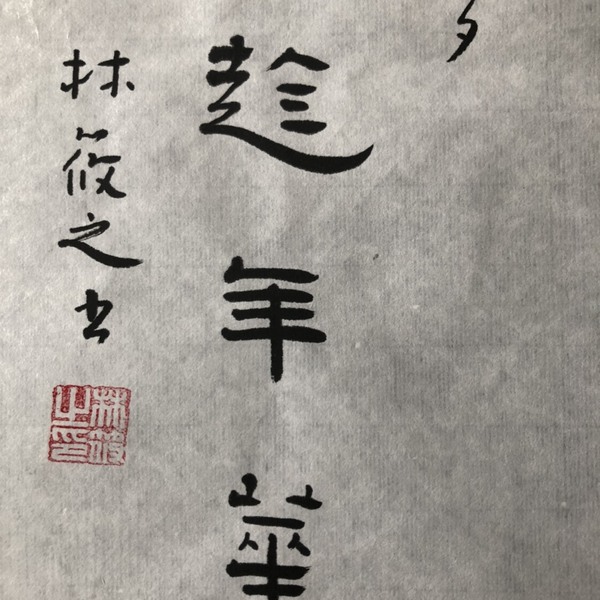 趁年華
林筱之书
林筱之印